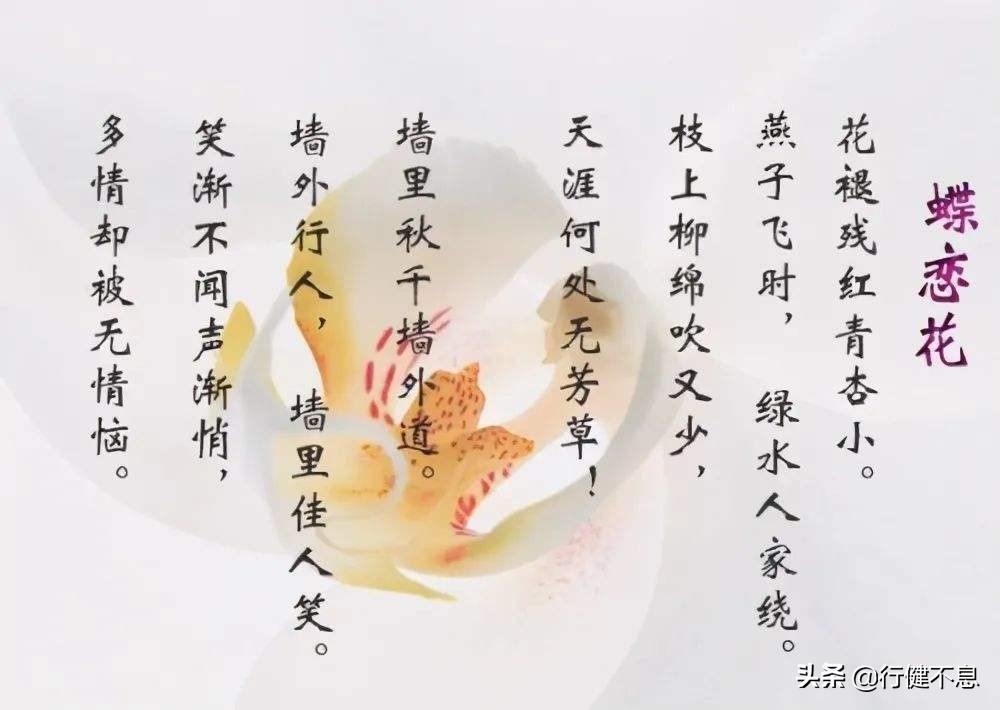 蝶恋花
花褪残红青杏小。
燕子飞时，绿水人家绕。
枝上柳绵吹又少，
天涯何处无芳草！
墙里秋千墙外道。
墙外行人，墙里佳人笑。
笑渐不闻声渐悄，
多情却被无情恼。
头条 @行健不息